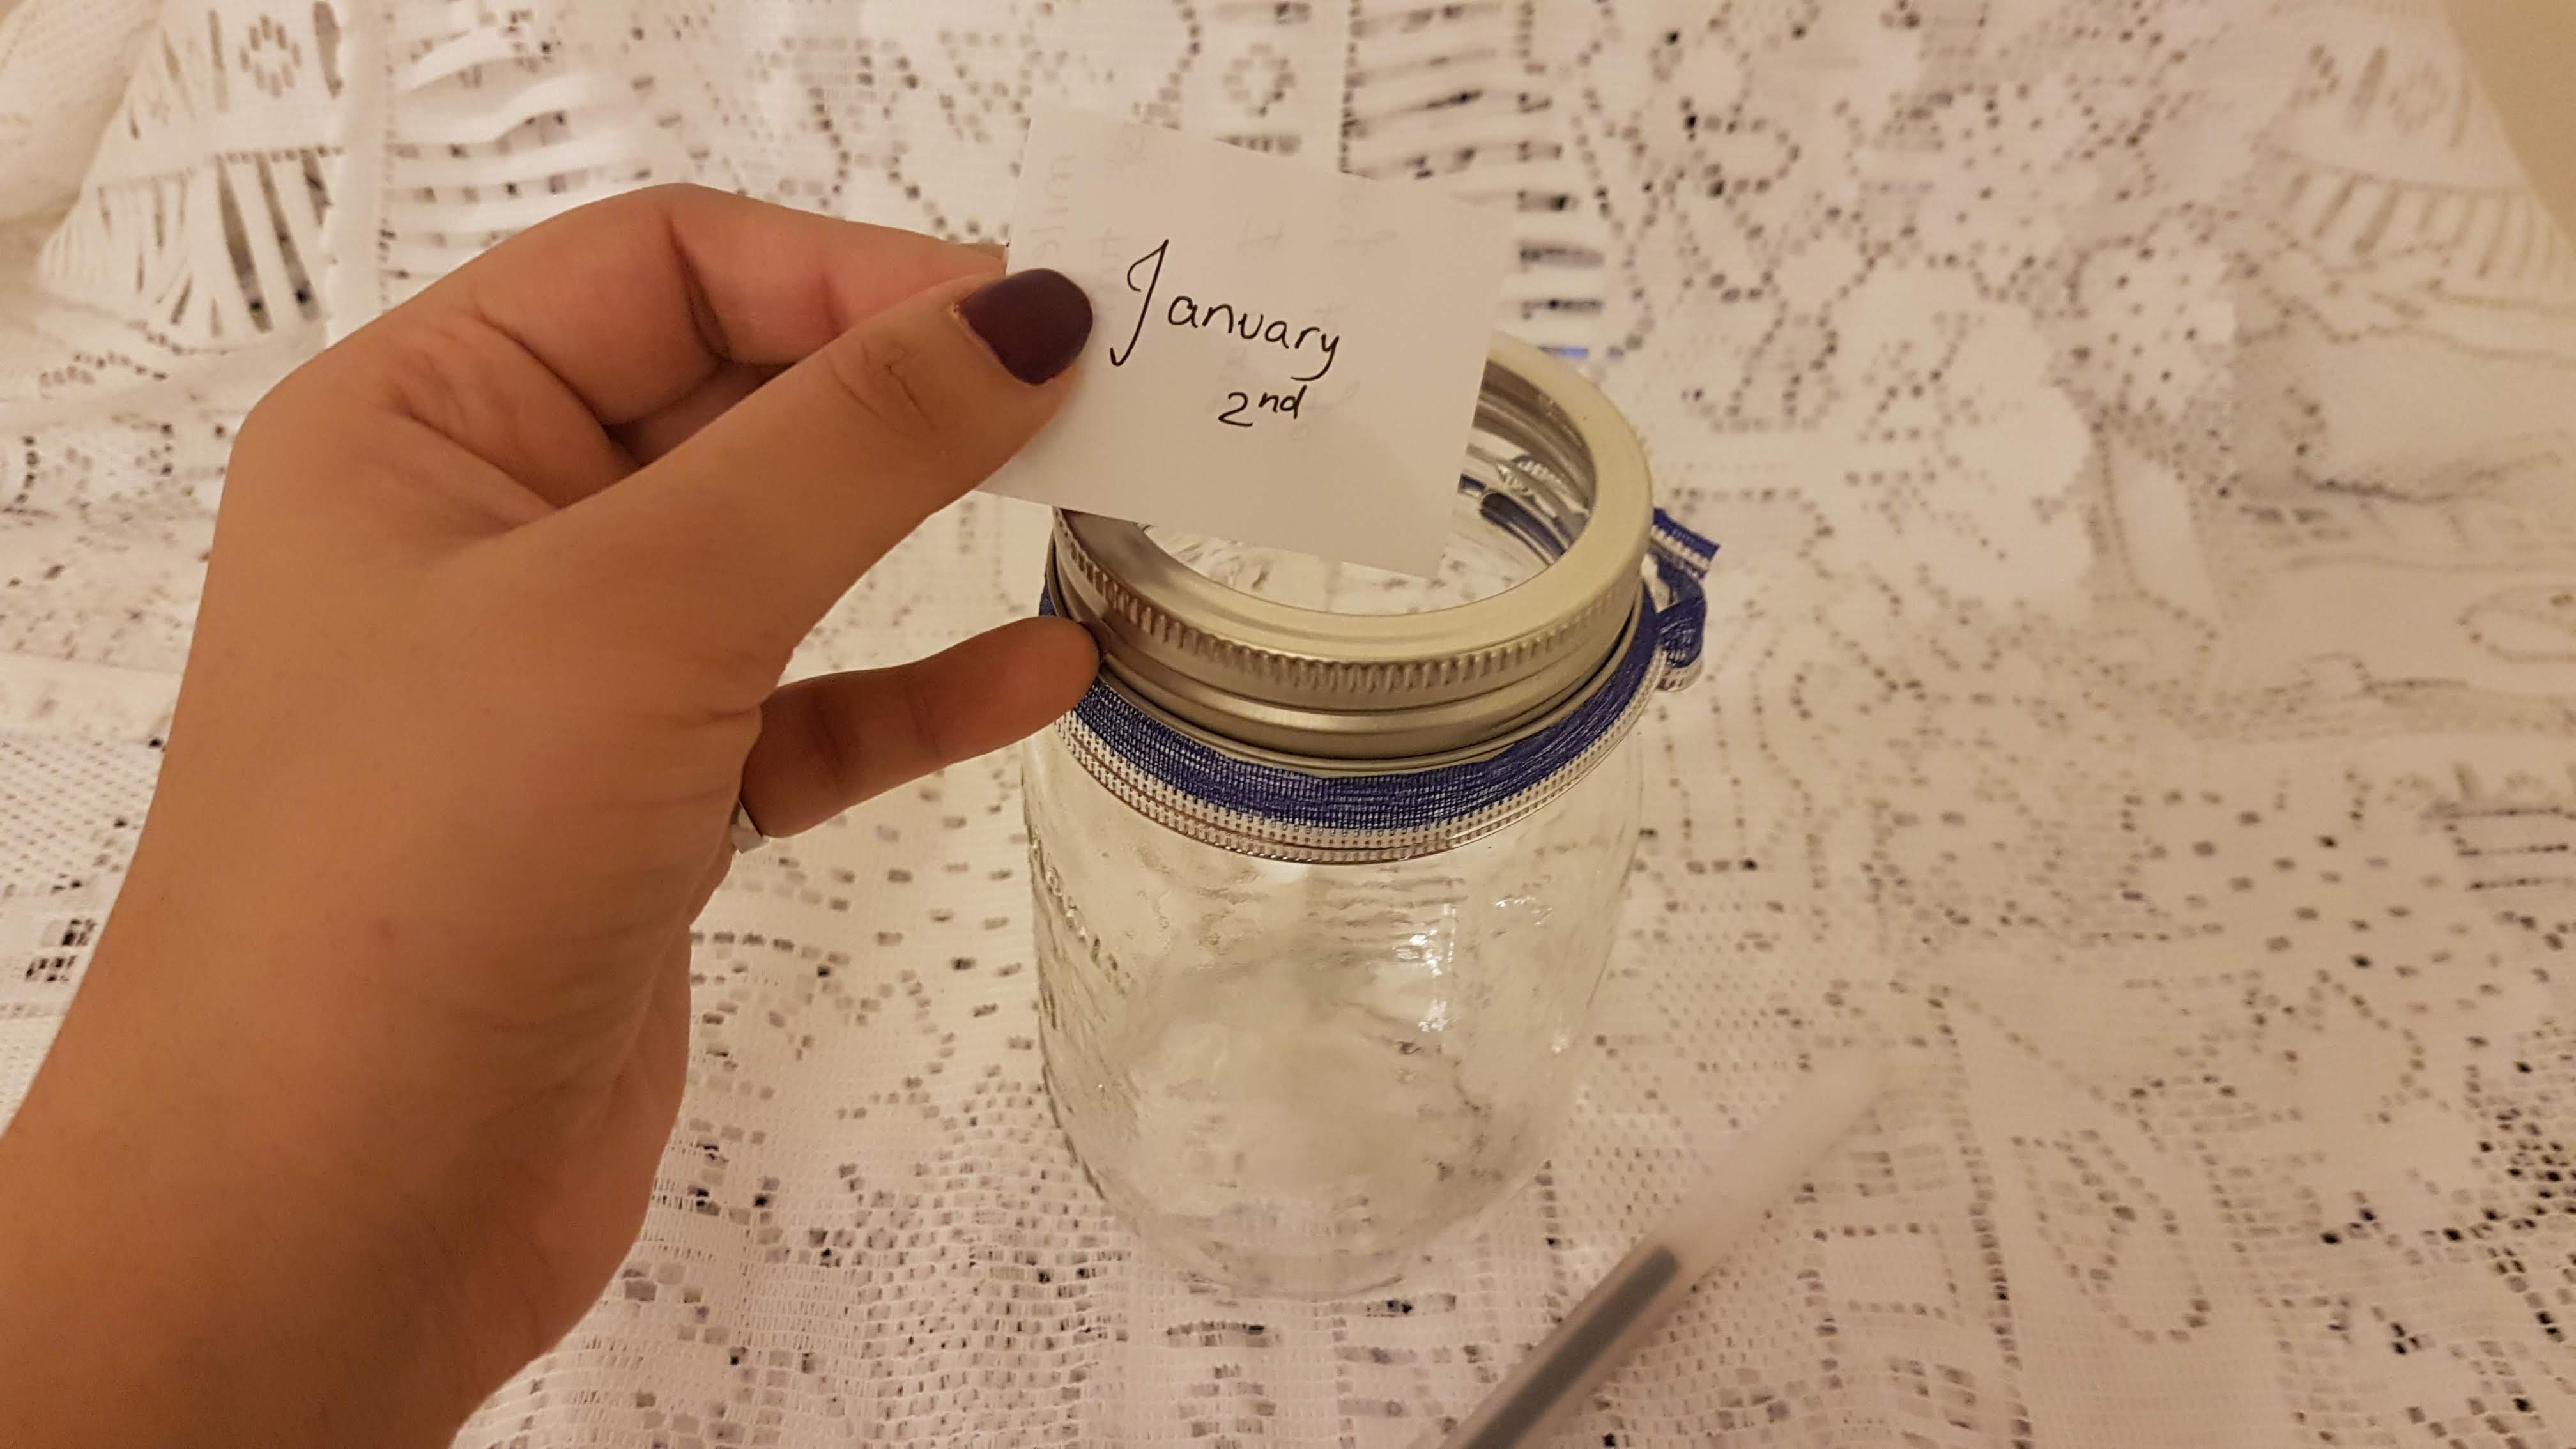 January
2nd